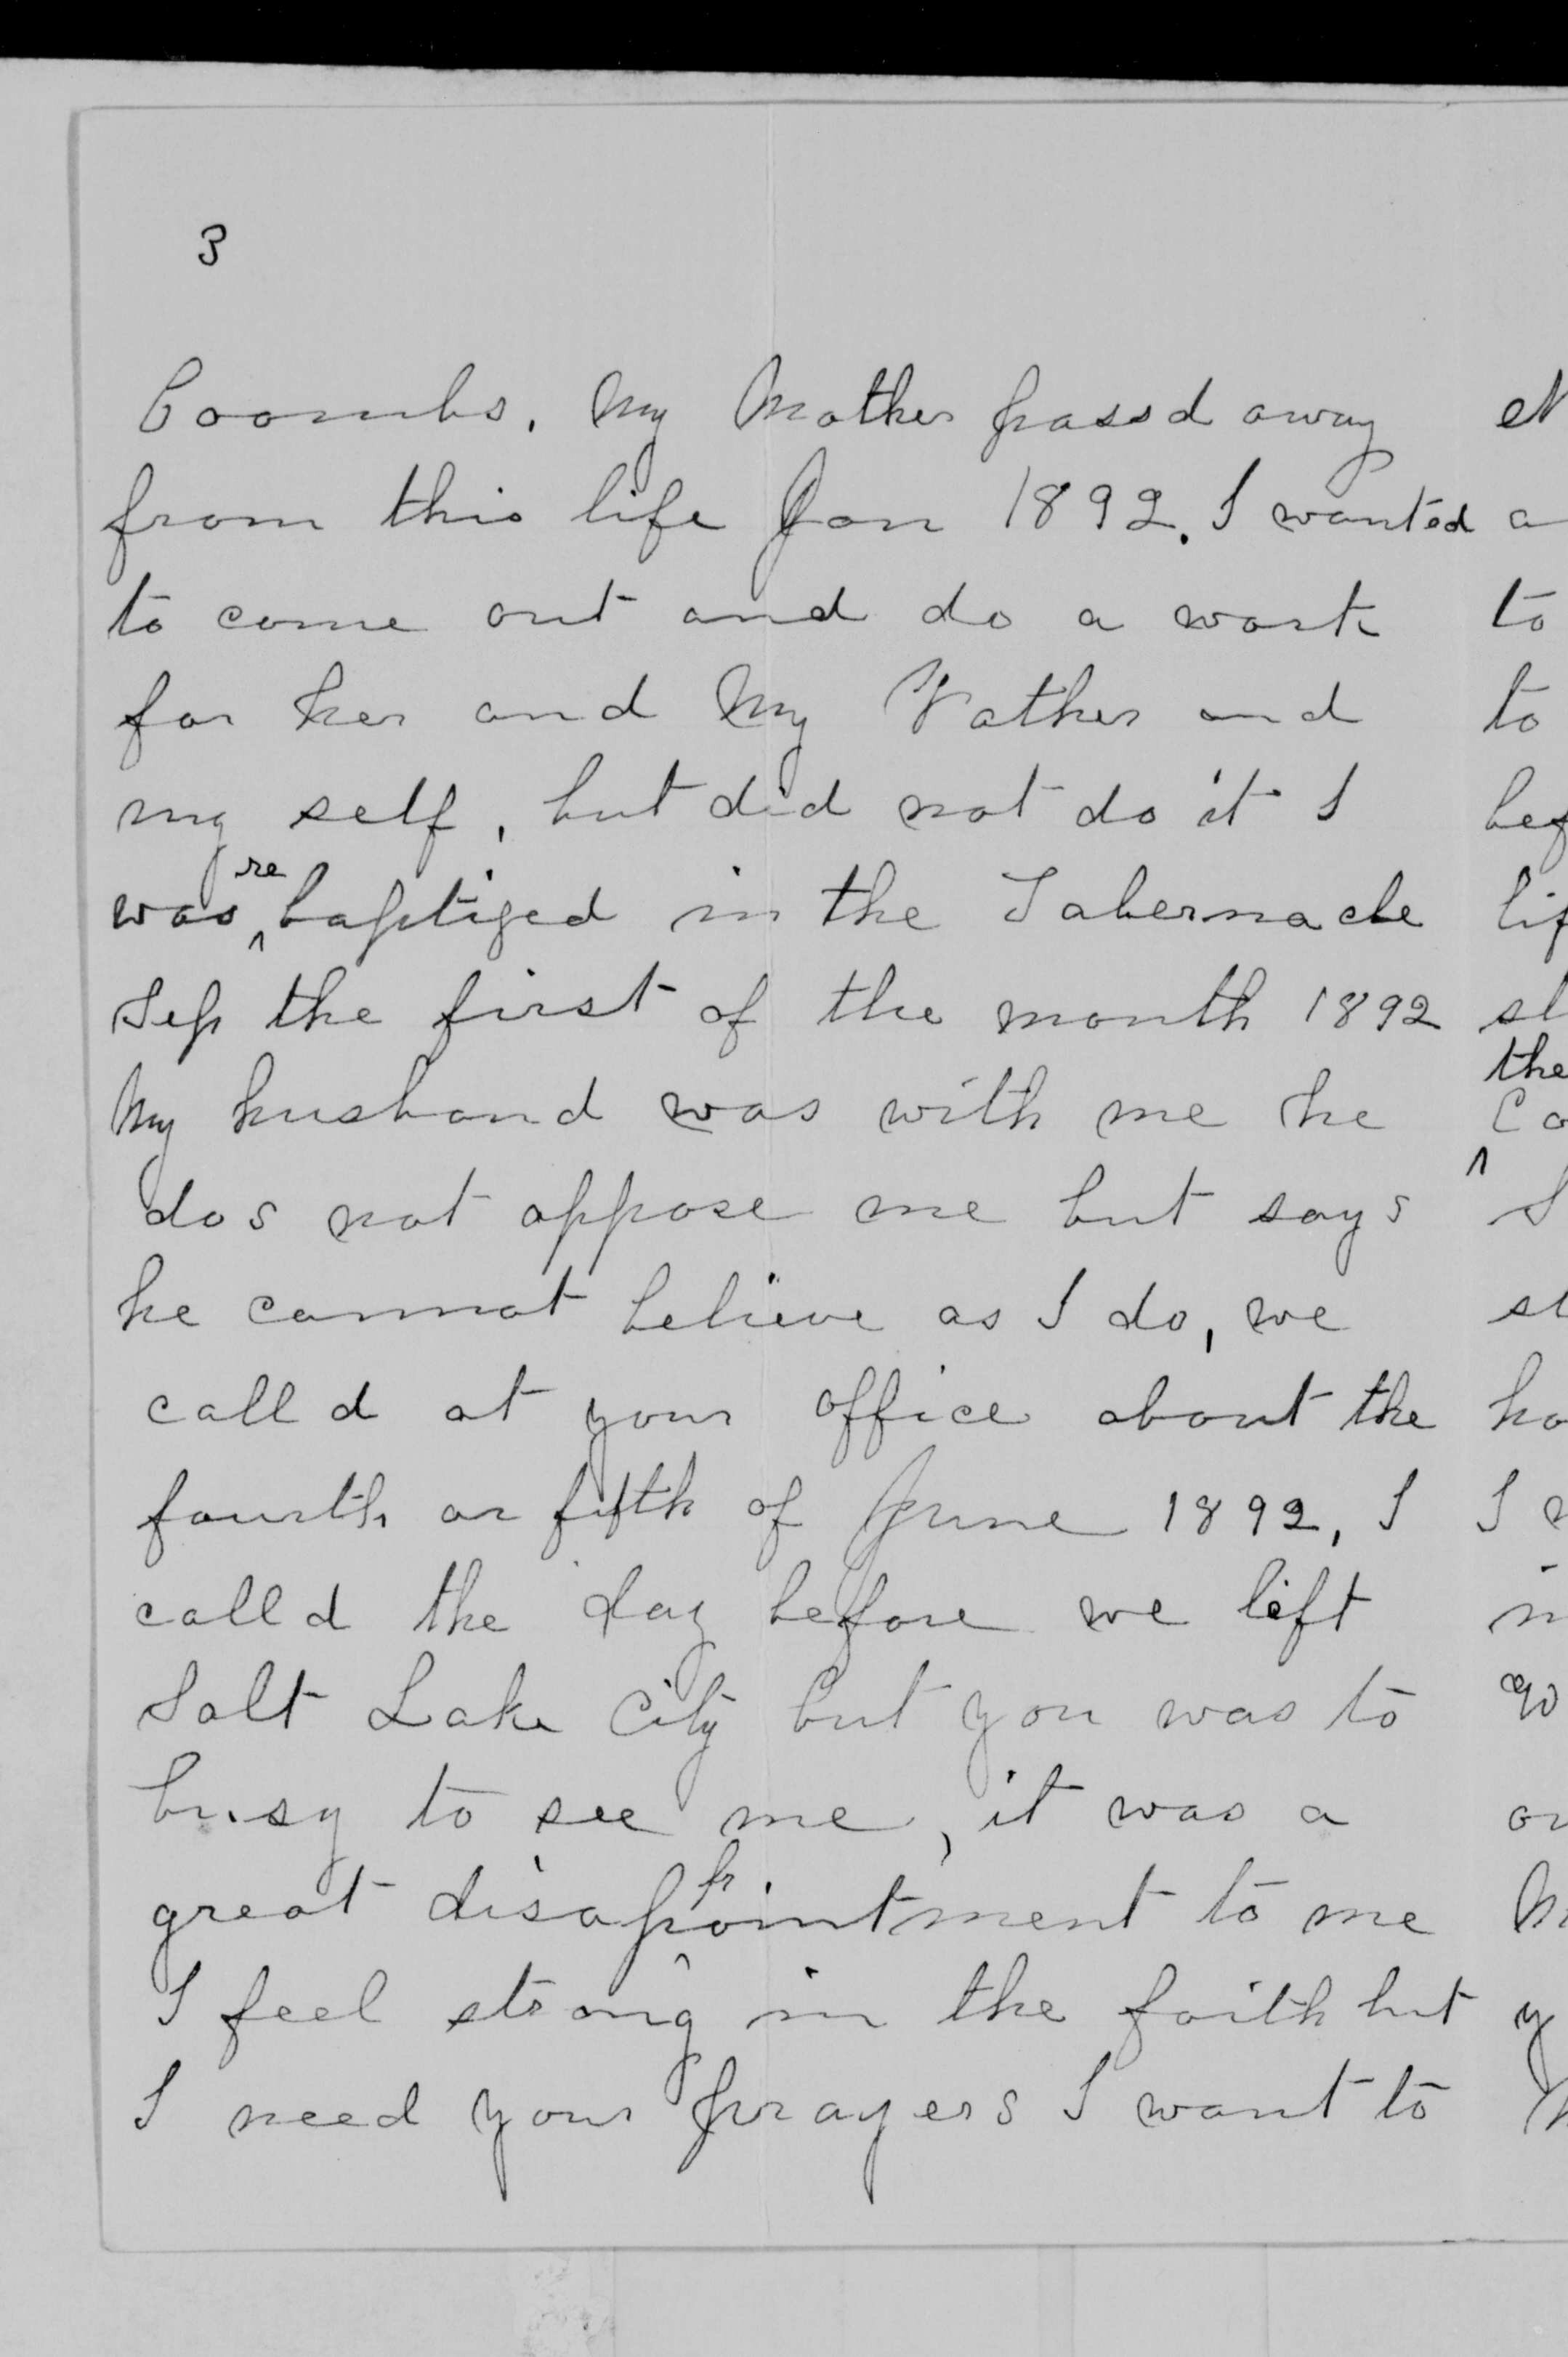 3
Coombs. My Mother passd away
from this life Jan 1892. I wanted
to come out and do a work
for her and My Father and
my self, but did not do it I
was ^re baptized in the Tabernacle
Sep the first of the month 1892
My husband was with me he
dos not oppose me but says
he cannot believe as I do, we
calld at your office about the
fourth or fifth of June 1892, I
calld the day before we left
Salt Lake City but you was to
busy to see me, it was a
great disap^pointment to me
I feel strong in the faith but
I need your prayers I want to